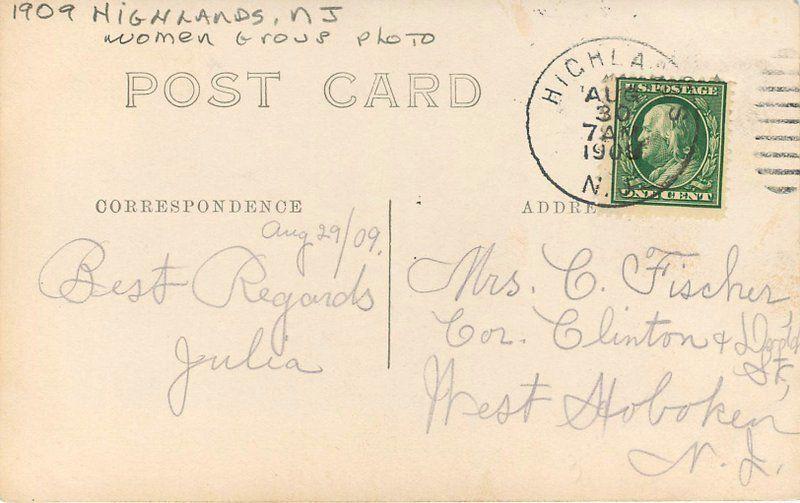 1909 HIGHLANDS, NJ
WOMEN GROUP PHOTO
POST CARD
HIGHLA
AUG
30
7 AM
1909
N.J.
U.S. POSTAGE
ONE CENT
CORRESPONDENCE
ADDRE
Aug 29/09.
Best Regards
Julia
Mrs. C. Fischer,
Cor. Clinton &
St,
West Hoboken
N. J.